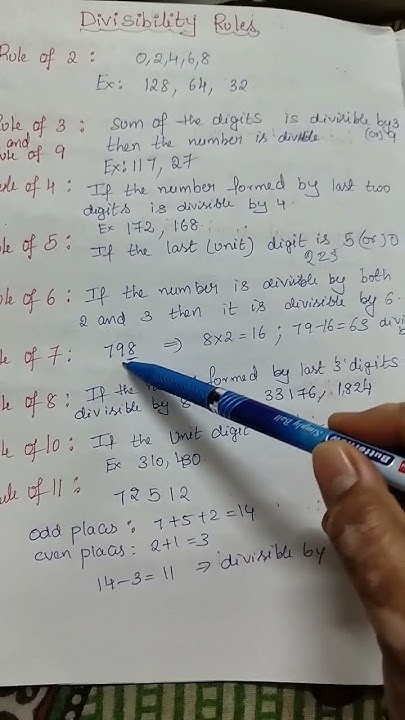 Divisibility Rules
Rule of 2 : 0,2,4,6,8
Ex: 128, 64, 32
Rule of 3 : Sum of the digits is divisible by 3
and then the number is divisible. (or) 9
Rule of 9 Ex: 117, 27
Rule of 4 : If the number formed by last two
digits is divisible by 4.
Ex 172, 168.
Rule of 5 : If the last (unit) digit is 5 (or) 0
2 & 3
Rule of 6 : If the number is divisible by both
2 and 3 then it is divisible by 6.
Rule of 7 : 798 ⇒ 8×2=16 ; 79-16=63 divi
Rule of 8 : If the formed by last 3 digits
divisible by 8 33176, 1824
Rule of 10 : If the Unit digit
Ex 310, 430
Rule of 11 : 72512
odd places : 7+5+2=14
even places : 2+1=3
14-3=11 ⇒ divisible by
Simply Ball
Button